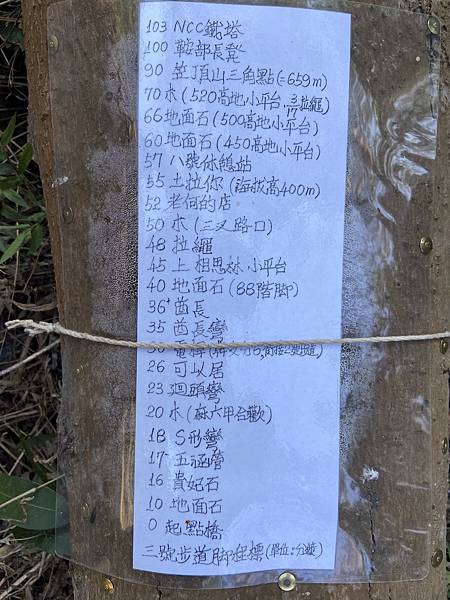 103 NCC鐵塔
100 鞍部長凳
90 笠頂山三角點(=659m)
70 木(520高地小平台, 3/17拉繩)
66 地面石(500高地小平台)
60 地面石(450高地小平台)
57 八號休憩站
55 土拉你(海拔高400m)
52 老何的店
50 木(三叉路口)
48 拉繩
45 上相思林小平台
40 地面石(88階脚)
36 酋長
35 酋長彎
30 電桿
26 可以居
23 迴頭彎
20 木(森六甲合歡)
18 S形彎
17 五涵管
16 貴妃石
10 地面石
0 起點橋
三號步道脚程標(單位:分鐘)